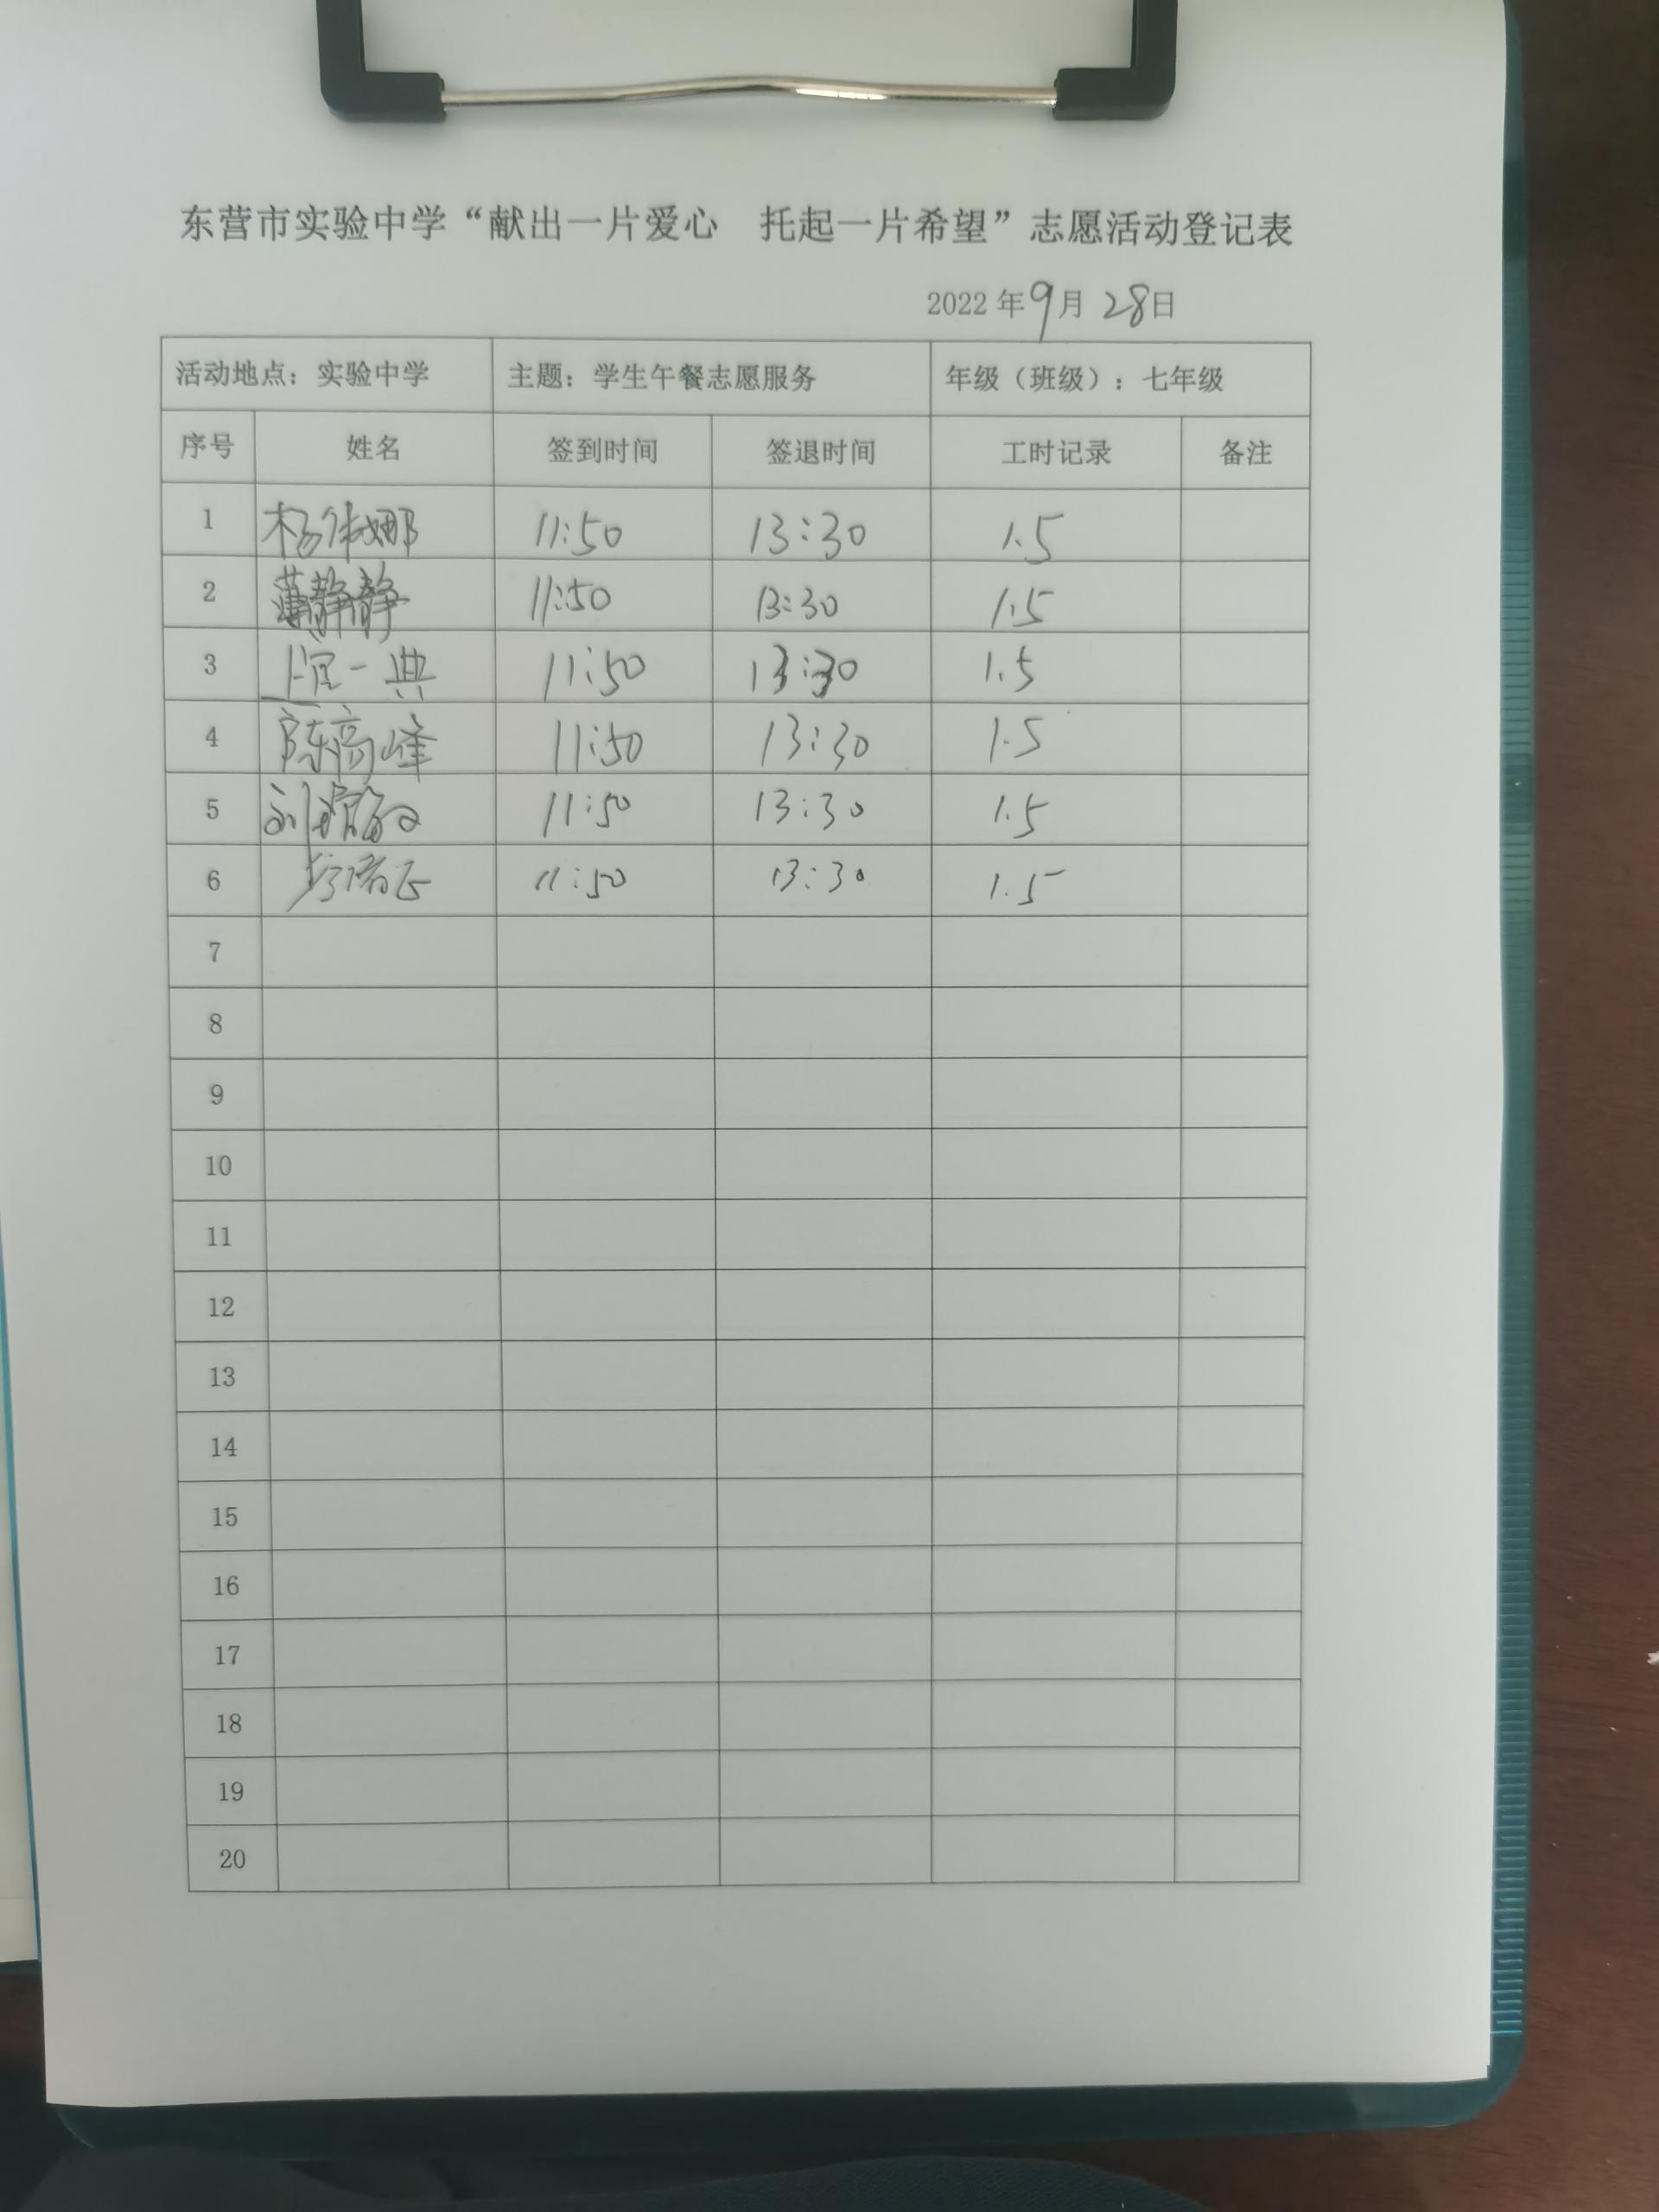 东营市实验中学“献出一片爱心 托起一片希望”志愿活动登记表
2022年9月28日
活动地点：实验中学 主题：学生午餐志愿服务 年级（班级）：七年级
序号 姓名 签到时间 签退时间 工时记录 备注
1 杨 娜 11:50 13:30 1.5
2 薄静静 11:50 13:30 1.5
3 一典 11:50 13:30 1.5
4 陈高峰 11:50 13:30 1.5
5 刘 11:50 13:30 1.5
6 11:50 13:30 1.5
7
8
9
10
11
12
13
14
15
16
17
18
19
20